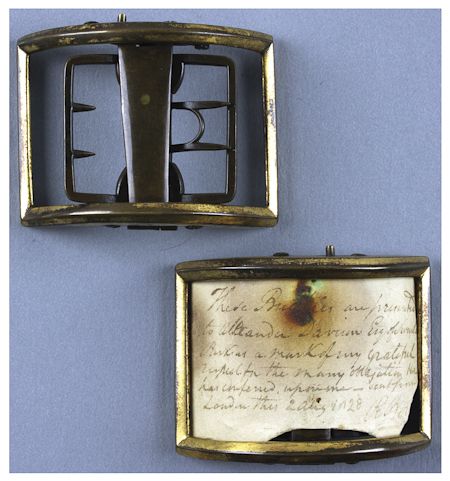 These Buckles are presented
to Alexander Davison Esq of
as a mark of my grateful
respect for the many obligation he
has conferred upon me — sent from
London this 2 Aug 1828